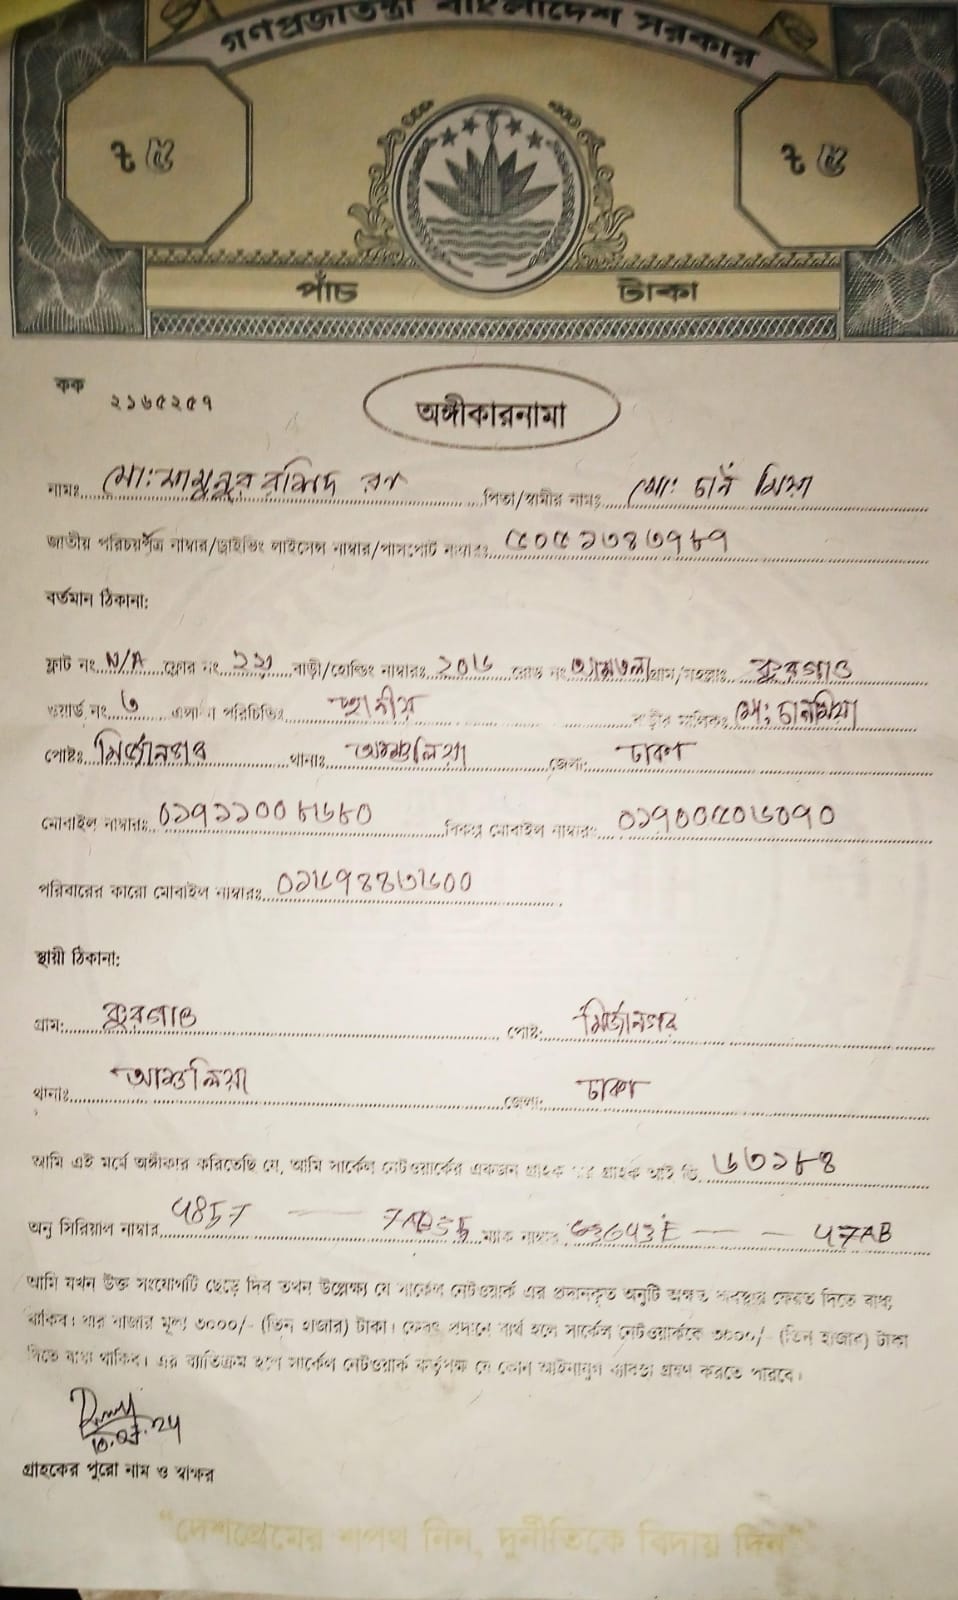 গণপ্রজাতন্ত্রী বাংলাদেশ সরকার
৳ ৫ ৳ ৫
পাঁচ টাকা
কক ২১৬৫২৫৭
অঙ্গীকারনামা
নামঃ মোঃ মামুনুর রশিদ পিতা/স্বামীর নামঃ মোঃ চাঁন মিয়া
জাতীয় পরিচয়পত্র নাম্বার/ড্রাইভিং লাইসেন্স নাম্বার/পাসপোর্ট নাম্বারঃ ৫০৫১৩৪৩৭৮৭
বর্তমান ঠিকানা:
ফ্লাট নং N/A ফ্লোর নং ২য় বাড়ী/হোল্ডিং নাম্বারঃ ২০৬ রোড নং আমতলা গ্রাম/মহল্লাঃ কুরগাও
ওয়ার্ড নং ৩ এলাকা পরিচিতিঃ স্থানীয় বাড়ীর মালিকঃ মো: চানমিয়া
পোষ্টঃ মির্জানগর থানাঃ আশুলিয়া জেলা: ঢাকা
মোবাইল নাম্বারঃ ০১৭১১০০৮৬৮০ বিকল্প মোবাইল নাম্বারঃ
পরিবারের কারো মোবাইল নাম্বারঃ ০১৬৭৪৪৩৬০০
স্থায়ী ঠিকানা:
গ্রাম: কুরগাও পোষ্ট: মির্জানগর
থানাঃ আশুলিয়া জেলা: ঢাকা
আমি এই মর্মে অঙ্গীকার করিতেছি যে, আমি সার্কেল নেটওয়ার্কের একজন গ্রাহক যার গ্রাহক আই ডি. ৬৩১৮৪
অনু সিরিয়াল নাম্বার 4857 ম্যাক নাম্বার 47AB
আমি যখন উক্ত সংযোগটি ছেড়ে দিব তখন উল্লেক্ষ্য যে সার্কেল নেটওয়ার্ক এর প্রদানকৃত অনুটি অক্ষত অবস্থায় ফেরত দিতে বাধ্য
থাকিব। যার বাজার মূল্য ৩০০০/- (তিন হাজার) টাকা। ফেরৎ প্রদানে ব্যর্থ হলে সার্কেল নেটওয়ার্ককে ৩০০০/- (তিন হাজার) টাকা
দিতে বাধ্য থাকিব। এর ব্যাতিক্রম হলে সার্কেল নেটওয়ার্ক কর্তৃপক্ষ যে কোন আইনানুগ ব্যাবস্থা গ্রহণ করতে পারবে।
গ্রাহকের পুরো নাম ও স্বাক্ষর
"দেশপ্রেমের শপথ নিন, দুর্নীতিকে বিদায় দিন"